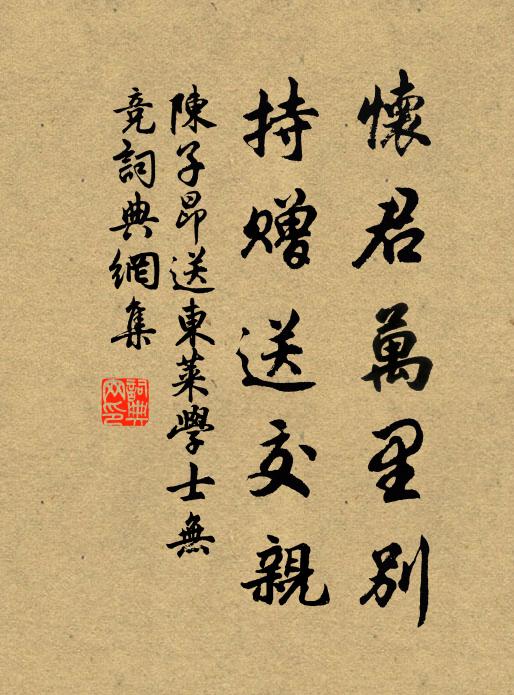 懷君萬里別
持贈送交親
陳子昂送東萊學士無
竞詞典網集
詞典网印